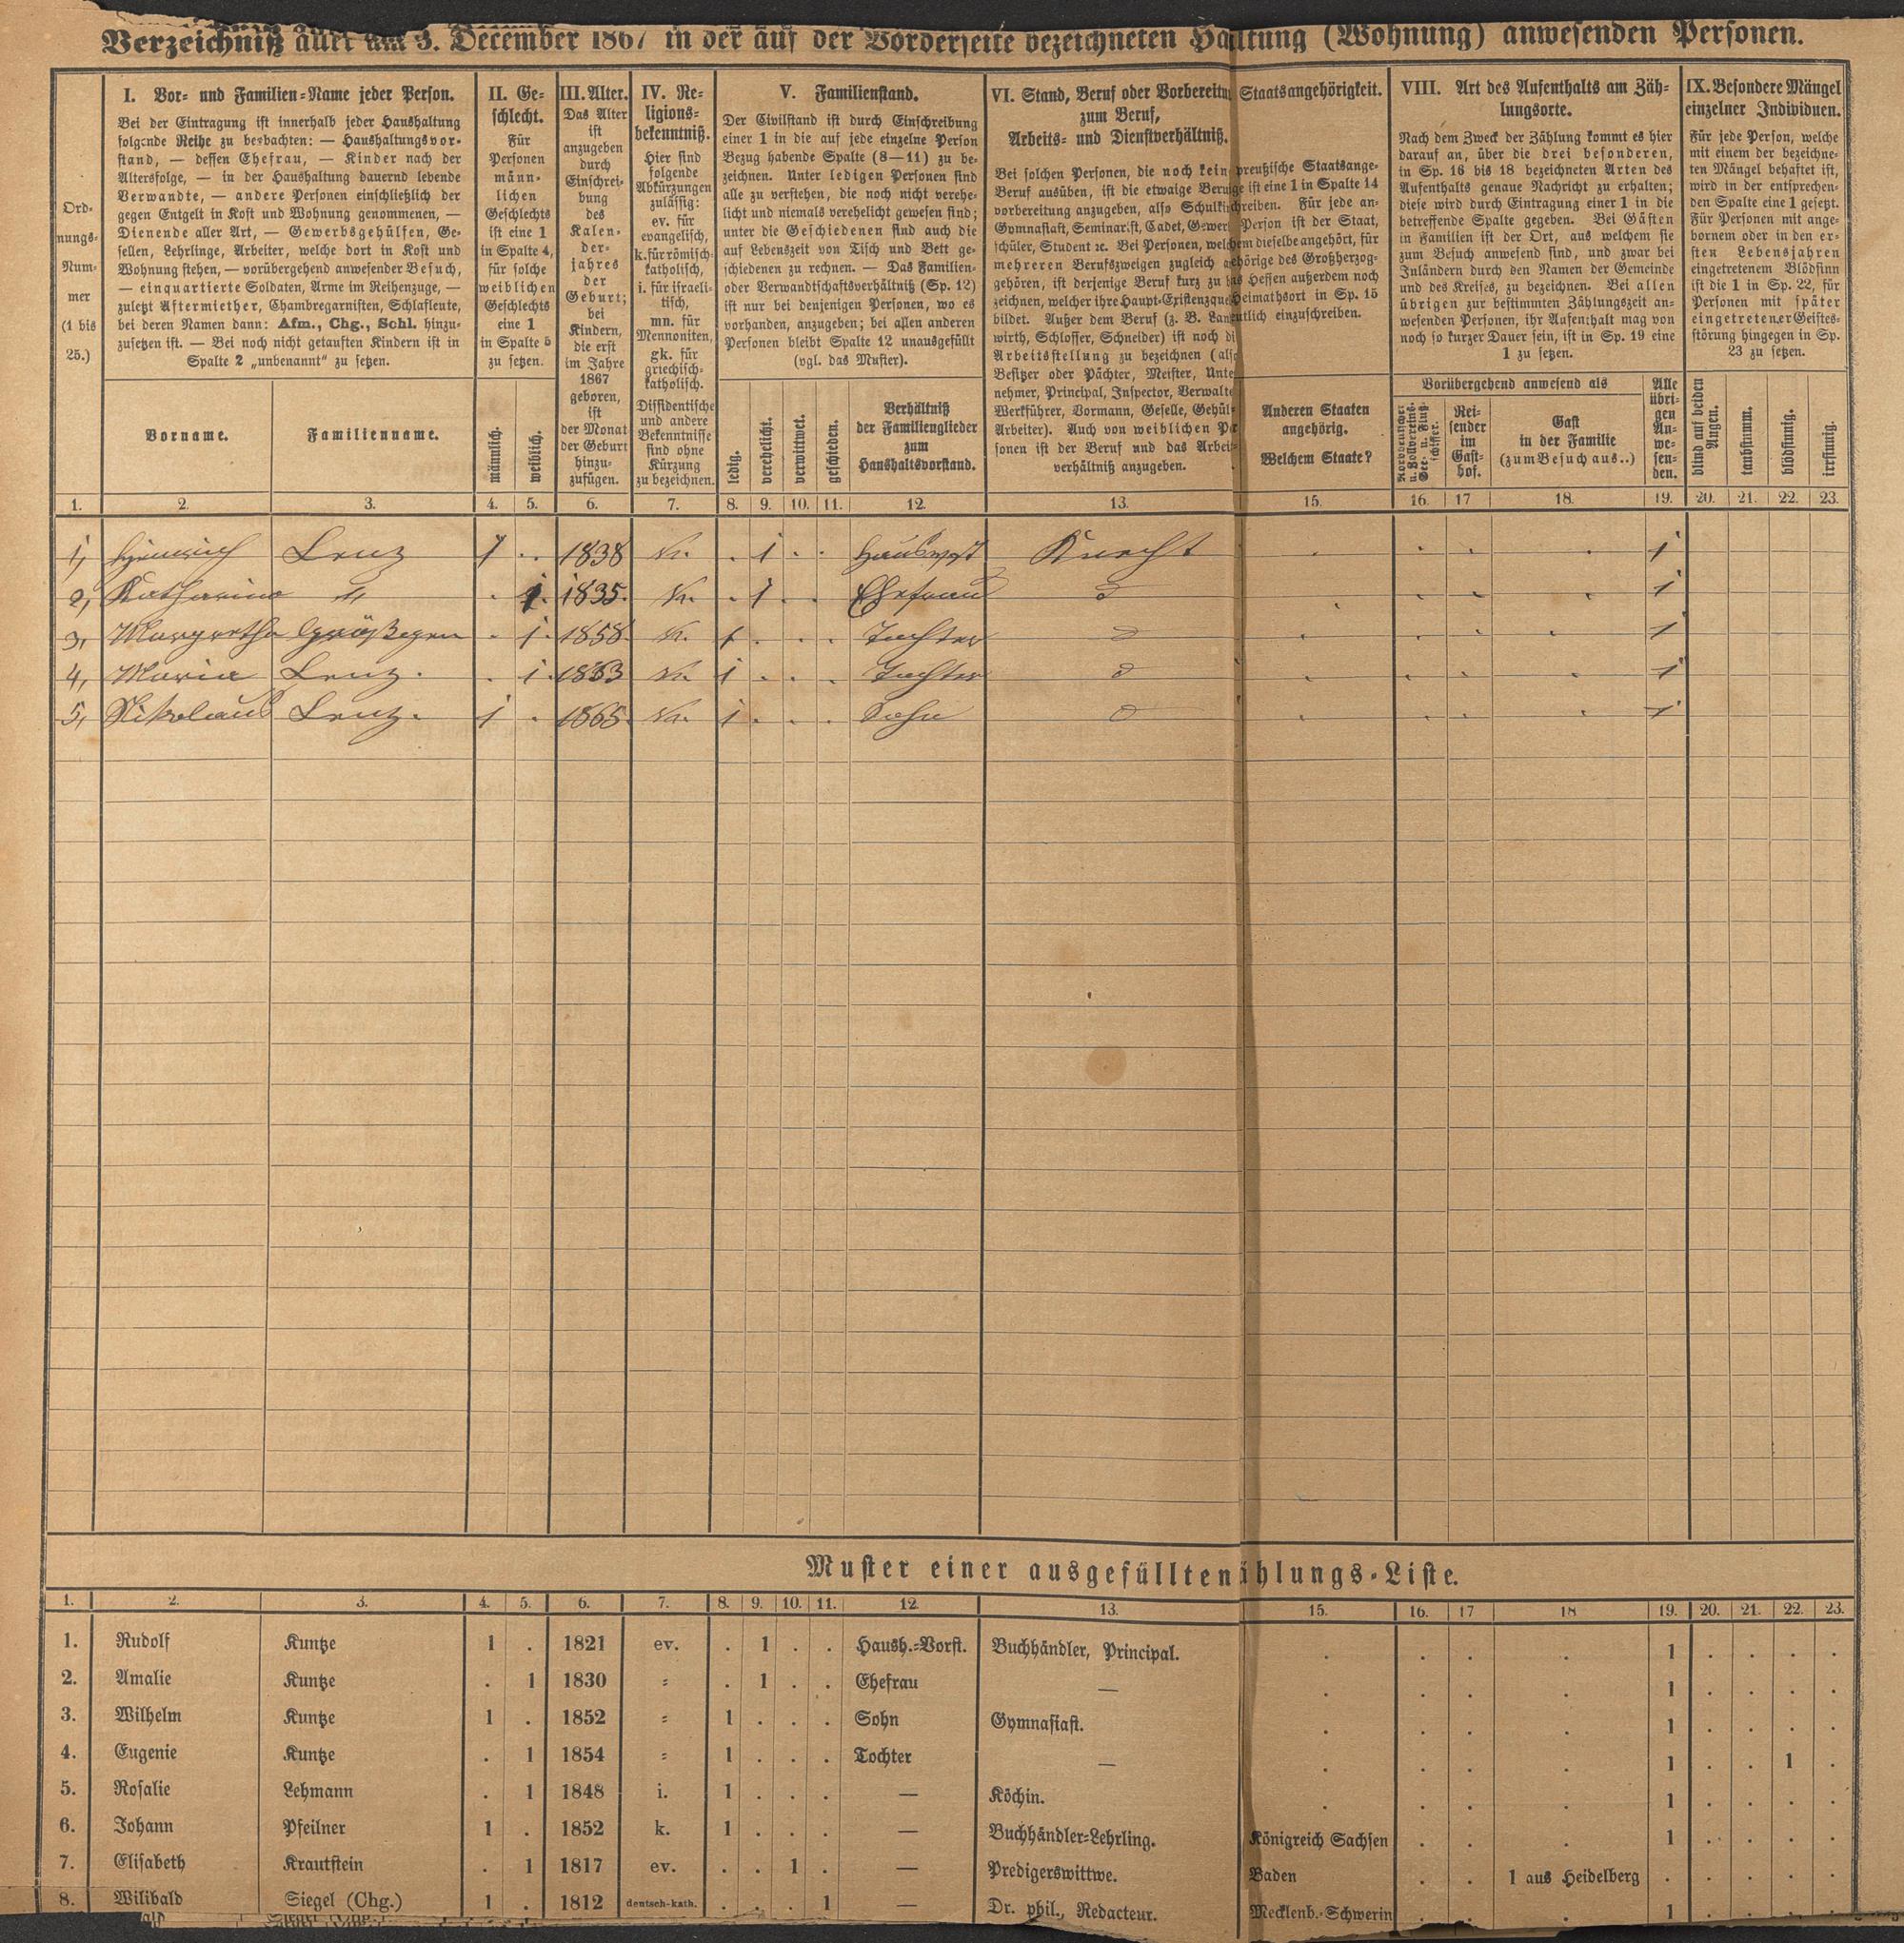 Verzeichniß aller am 3. December 1867 in der auf der Vorderseite bezeichneten Haltung (Wohnung) anwesenden Personen.
Ord-
nungs-
Num-
mer
(1 bis
25.)
I. Vor- und Familien-Name jeder Person.
Bei der Eintragung ist innerhalb jeder Haushaltung
folgende Reihe zu beobachten: — Haushaltungsvor-
stand, — dessen Ehefrau, — Kinder nach der
Altersfolge, — in der Haushaltung dauernd lebende
Verwandte, — andere Personen einschließlich der
gegen Entgelt in Kost und Wohnung genommenen, —
Dienende aller Art, — Gewerbsgehülfen, Ge-
sellen, Lehrlinge, Arbeiter, welche dort in Kost und
Wohnung stehen, — vorübergehend anwesender Besuch,
— einquartierte Soldaten, Arme im Reihenzuge, —
zuletzt Aftermiether, Chambregarnisten, Schlafleute,
bei deren Namen dann: Afm., Chg., Schl. hinzu-
zusetzen ist. — Bei noch nicht getauften Kindern ist in
Spalte 2 „unbenannt“ zu setzen.
Vorname.
Familienname.
II. Ge-
schlecht.
Für
Personen
männ-
lichen
Geschlechts
ist eine 1
in Spalte 4,
für solche
weiblichen
Geschlechts
eine 1
in Spalte 5
zu setzen.
männlich.
weiblich.
III. Alter.
Das Alter
ist
anzugeben
durch
Einschrei-
bung
des
Kalen-
der-
jahres
der
Geburt;
bei
Kindern,
die erst
im Jahre
1867
geboren,
ist
der Monat
der Geburt
hinzu-
zufügen.
IV. Re-
ligions-
bekenntniß.
Hier sind
folgende
Abkürzungen
zulässig:
ev. für
evangelisch,
k. für römisch-
katholisch,
i. für israeli-
tisch,
mn. für
Mennoniten,
gk. für
griechisch-
katholisch.
Dissidentische
und andere
Bekenntnisse
sind ohne
Kürzung
zu bezeichnen.
V. Familienstand.
Der Civilstand ist durch Einschreibung
einer 1 in die auf jede einzelne Person
Bezug habende Spalte (8—11) zu be-
zeichnen. Unter ledigen Personen sind
alle zu verstehen, die noch nicht verehe-
licht und niemals verehelicht gewesen sind;
unter die Geschiedenen sind auch die
auf Lebenszeit von Tisch und Bett ge-
schiedenen zu rechnen. — Das Familien-
oder Verwandtschaftsverhältniß (Sp. 12)
ist nur bei denjenigen Personen, wo es
vorhanden, anzugeben; bei allen anderen
Personen bleibt Spalte 12 unausgefüllt
(vgl. das Muster).
ledig.
verehelicht.
verwittwet.
geschieden.
Verhältniß
der Familienglieder
zum
Haushaltsvorstand.
VI. Stand, Beruf oder Vorbereitu
zum Beruf,
Arbeits- und Dienstverhältniß.
Bei solchen Personen, die noch kein
Beruf ausüben, ist die etwaige Beru
vorbereitung anzugeben, also Schulki
Gymnasiast, Seminarist, Cadet, Gewer
schüler, Student ꝛc. Bei Personen, welch
mehreren Berufszweigen zugleich a
gehören, ist derjenige Beruf kurz zu b
zeichnen, welcher ihre Haupt-Existenzque
bildet. Außer dem Beruf (z. B. Lan
wirth, Schlosser, Schneider) ist noch di
Arbeitsstellung zu bezeichnen (also
Besitzer oder Pächter, Meister, Unte
nehmer, Principal, Inspector, Verwalte
Werkführer, Vormann, Geselle, Gehül
Arbeiter). Auch von weiblichen Pe
sonen ist der Beruf und das Arbei
verhältniß anzugeben.
Staatsangehörigkeit.
preußische Staatsange-
ge ist eine 1 in Spalte 14
chreiben. Für jede an-
Person ist der Staat,
em dieselbe angehört, für
ehörige des Großherzog-
s Hessen außerdem noch
Heimathsort in Sp. 15
utlich einzuschreiben.
Anderen Staaten
angehörig.
Welchem Staate?
VIII. Art des Aufenthalts am Zäh-
lungsorte.
Nach dem Zweck der Zählung kommt es hier
darauf an, über die drei besonderen,
in Sp. 16 bis 18 bezeichneten Arten des
Aufenthalts genaue Nachricht zu erhalten;
diese wird durch Eintragung einer 1 in die
betreffende Spalte gegeben. Bei Gästen
in Familien ist der Ort, aus welchem sie
zum Besuch anwesend sind, und zwar bei
Inländern durch den Namen der Gemeinde
und des Kreises, zu bezeichnen. Bei allen
übrigen zur bestimmten Zählungszeit an-
wesenden Personen, ihr Aufenthalt mag von
noch so kurzer Dauer sein, ist in Sp. 19 eine
1 zu setzen.
Vorübergehend anwesend als
Norddeutscher
u. Zollvereins-
See- u. Fluß-
schiffer.
Rei-
sender
im
Gast-
hof.
Gast
in der Familie
(zum Besuch aus..)
Alle
übri-
gen
An-
we-
sen-
den.
IX. Besondere Mängel
einzelner Individuen.
Für jede Person, welche
mit einem der bezeichne-
ten Mängel behaftet ist,
wird in der entsprechen-
den Spalte eine 1 gesetzt.
Für Personen mit ange-
bornem oder in den er-
sten Lebensjahren
eingetretenem Blödsinn
ist die 1 in Sp. 22, für
Personen mit später
eingetretener Geistes-
störung hingegen in Sp.
23 zu setzen.
blind auf beiden
Augen.
taubstumm.
blödsinnig.
irrsinnig.
1. 2. 3. 4. 5. 6. 7. 8. 9. 10. 11. 12. 13. 15. 16. 17 18. 19. 20. 21. 22. 23.
1, Heinrich Lenz 1 . 1838 k. . 1 . . Hausvorst Knecht . . . . 1
2, Katharina " . 1. 1835. k. . 1 . . Ehefrau . . . . 1
3, Margretha . 1. 1858. k. 1 . . . Tochter . . . . 1
4, Maria Lenz. . 1. 1863 k. 1 . . . Tochter . . . . 1
5, Nikolaus Lenz. 1 . 1865. k. 1 . . . Sohn . . . . 1
Muster einer ausgefülltenählungs-Liste.
1. 2. 3. 4. 5. 6. 7. 8. 9. 10. 11. 12. 13. 15. 16. 17 18 19. 20. 21. 22. 23.
1. Rudolf Kuntze 1 . 1821 ev. . 1 . . Haush.-Vorst. Buchhändler, Principal. . . . . 1 . . . .
2. Amalie Kuntze . 1 1830 = . 1 . . Ehefrau — . . . . 1 . . . .
3. Wilhelm Kuntze 1 . 1852 = 1 . . . Sohn Gymnasiast. . . . . 1 . . . .
4. Eugenie Kuntze . 1 1854 = 1 . . . Tochter — . . . . 1 . . 1 .
5. Rosalie Lehmann . 1 1848 i. 1 . . . — Köchin. . . . . 1 . . . .
6. Johann Pfeilner 1 . 1852 k. 1 . . . — Buchhändler-Lehrling. Königreich Sachsen . . . 1 . . . .
7. Elisabeth Krautstein . 1 1817 ev. . . 1 . — Predigerswittwe. Baden . . 1 aus Heidelberg . . . . .
8. Wilibald Siegel (Chg.) 1 . 1812 deutsch-kath. . . . 1 — Dr. phil., Redacteur. Mecklenb.-Schwerin . . . 1 . . . .